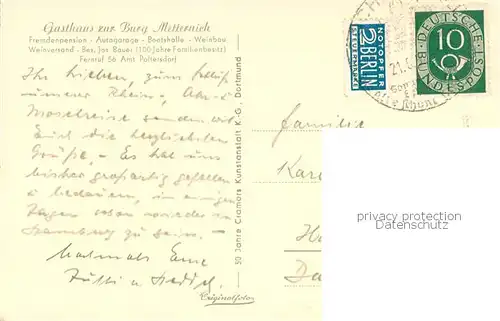 Gasthaus zur Burg Metternich
Fremdenpension - Autogarage - Bootshalle - Weinbau
Weinversand - Bes. Jos Bauer (100 Jahre Familienbesitz)
Fernruf 56 Amt Poltersdorf
Ihr Lieben, zum Schluß
unserer Rhein-, Ahr- u.
Moselreise senden wir
Euch die herzlichsten
Grüße. - Es hat uns
bisher großartig gefallen
u bedauern, in einigen
Tagen schon wieder in
Hamburg zu sein. -
Nochmals Eure
50 Jahre Cramers Kunstanstalt K-G., Dortmund
Originalfoto
NOTOPFER
2 BERLIN
STEUERMARKE
DEUTSCHE
10
BUNDESPOST
21.
Familie
privacy protection
Datenschutz